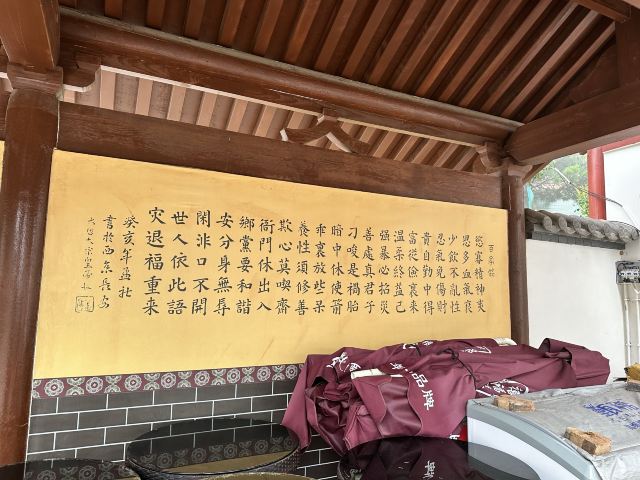 百字銘
慾寡精神爽
思多血氣衰
少飲不亂性
忍氣免傷財
貴自勤中得
富從儉裏來
温柔終益己
强暴必招災
善處真君子
刁唆是禍胎
暗中休使箭
乖裏放些呆
養性須修善
欺心莫喫齋
衙門休出入
鄉黨要和諧
安分身無辱
閑非口不開
世人依此語
灾退福重来
癸亥年孟
書於西京長安
品牌